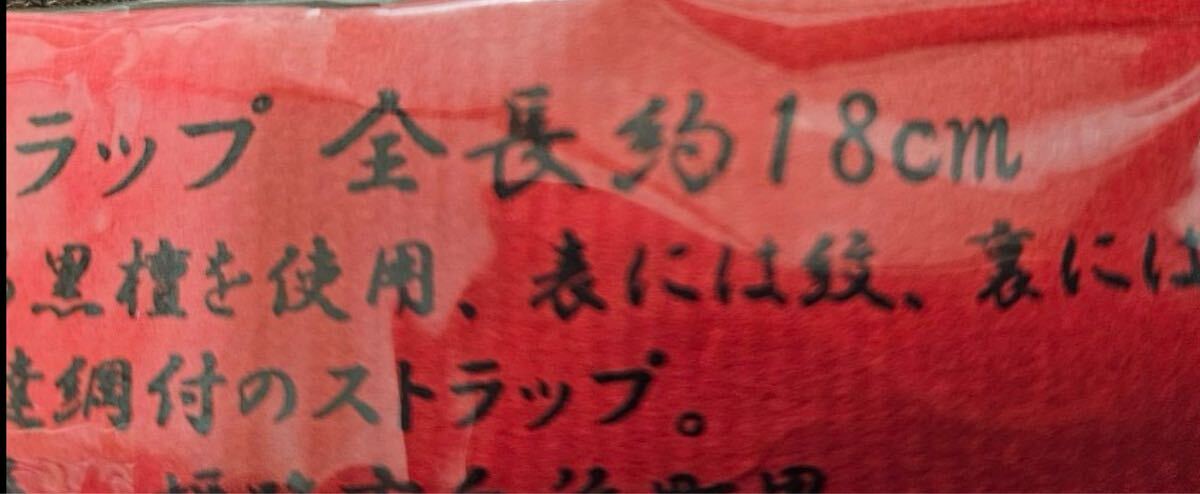 ラップ 全長約18cm
黒檀を使用、表には紋、裏には
達綱付のストラップ。